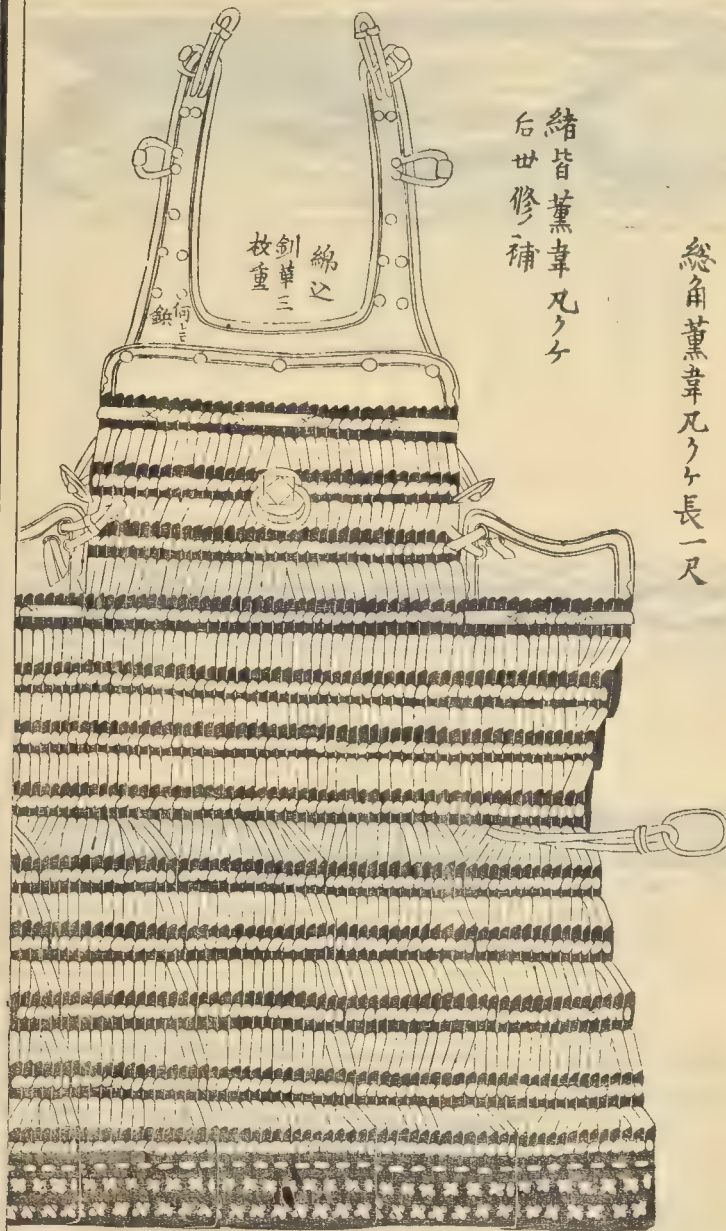 総角薫韋凡クケ長一尺
緒皆薫韋凡クケ
后世修補
綿込
釧革三
枚重
い何レモ
鋲